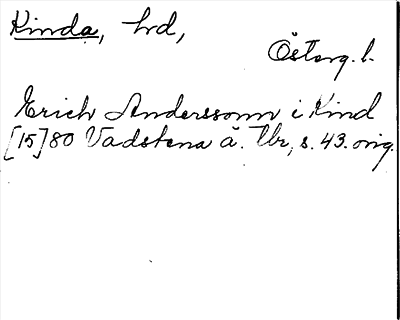 Kinda, hrd,
Österg. l.
Erich Anderssonn i Kind
[15]80 Vadstena ä. Ubr, s. 43. orig.